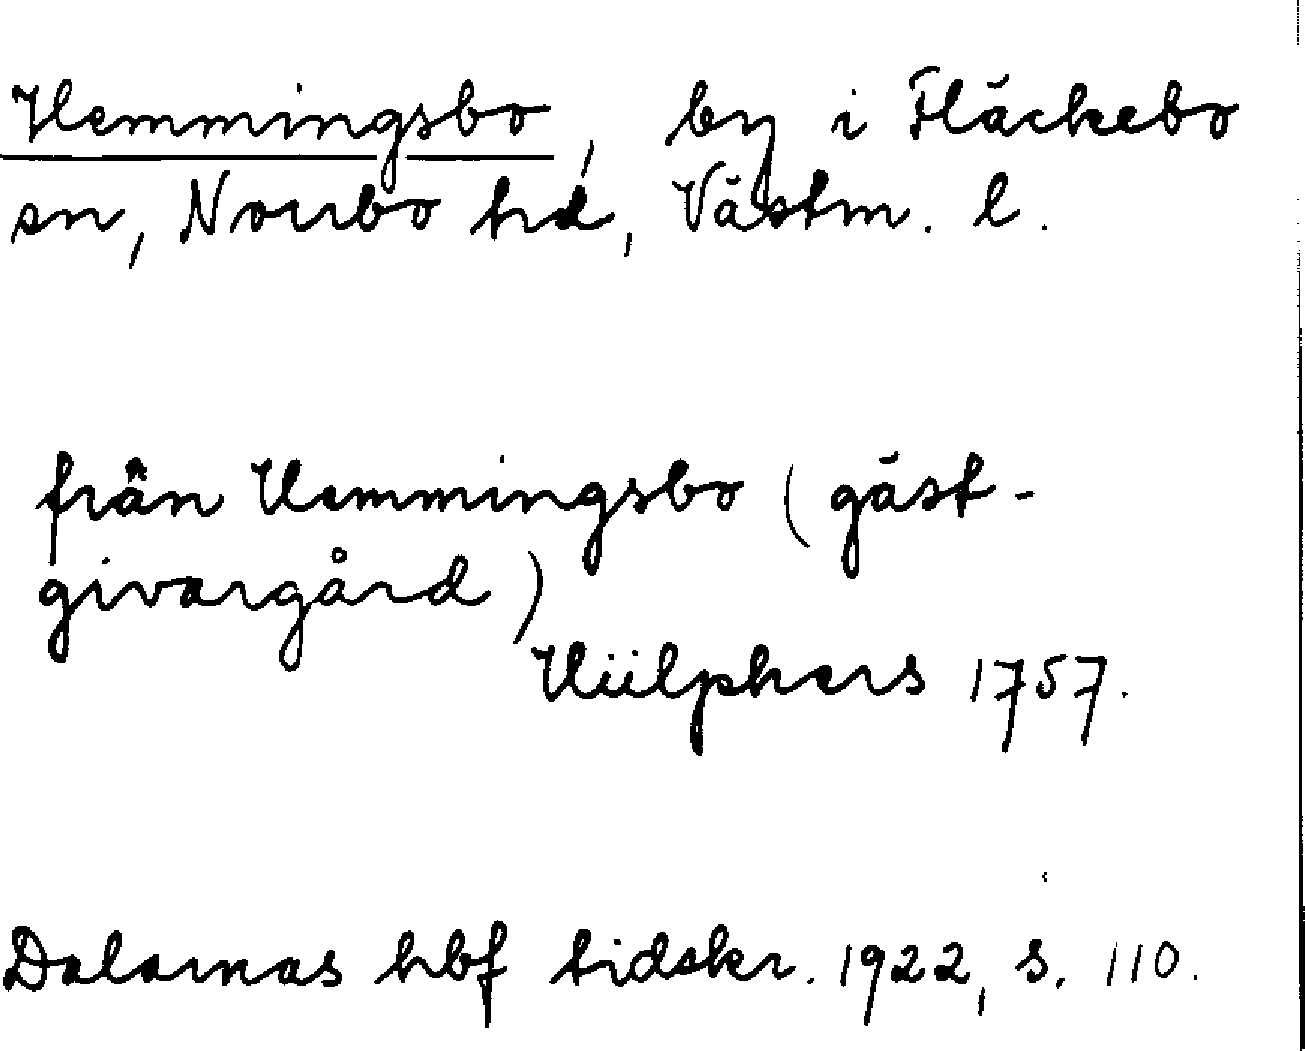 Hemmingsbo, by i Fläckebo
sn, Norrbo hd, Västm. l.
från Hemmingsbo (gäst-
givargård)
Hülphers 1757.
Dalarnas hbf tidskr. 1922, s. 110.